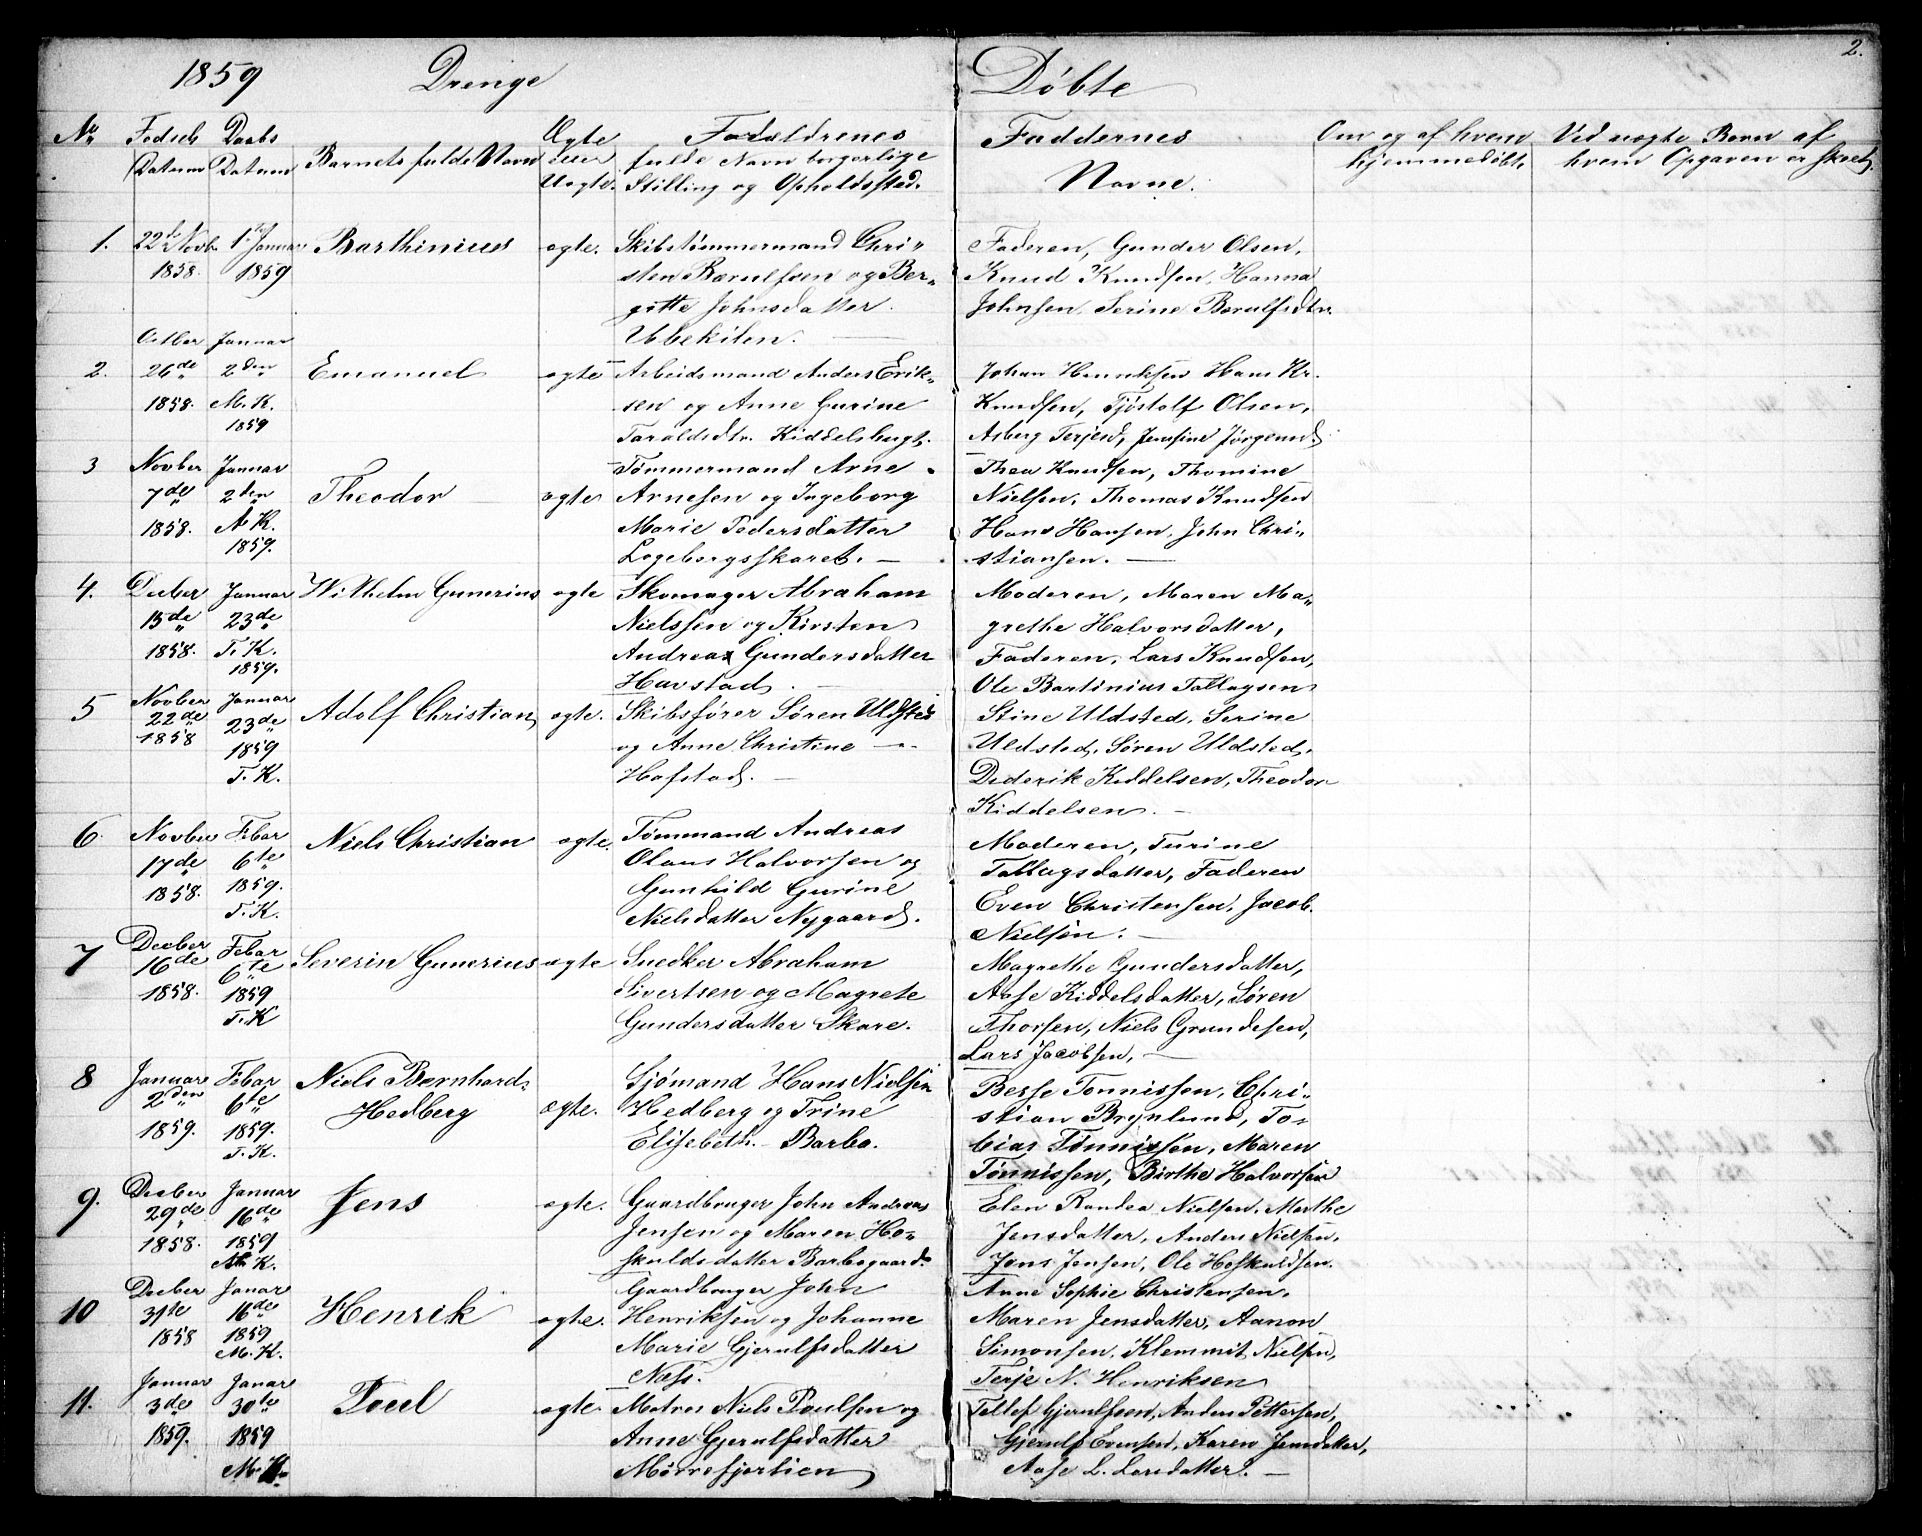 2.
1859 Drenge Döbte
No Fødsels Daabs Ægte Forældrenes Faddernes Om og af hvem Ved uægte Børn af
Datum Datum Barnets fulde Navn eller fulde Navn borgerlige Navne. hjemmedöbt. hvem Opgaven er skeet.
Uægte. Stilling og Opholdssted.
1. 22de Novbr 1ste Januar Barthinius ægte. Skibstömmermand Chri- Faderen, Gunder Olsen,
1858. 1859 sten Berulfsen og Ber- Knud Knudsen, Hanna
gitte Johnsdatter Johnsen, Serine Berulfsdtr.
Ubbekilen.
Octber Januar
2. 26de 2den Emanuel ægte Arbeidsmand Anders Erik- Johan Henriksen Hans Kr.
1858. M. K. sen og Anne Gurine Knudsen, Tjöstolf Olsen,
1859 Taraldsdtr. Kiddelsbugt. Asberg Terjesd, Jensine Jörgensd.
3 Novber Januar Tömmermand Arne Thea Knudsen, Thomine
7de 2den Theodor ægte Arnesen og Ingeborg Nielsen, Thomas Knudsen
1858. K. Marie Pedersdatter Hans Hansen, John Chri-
1859. Logebergsskaret. stiansen.
4. Decber Januar Wilhelm Gunerius ægte Skomager Abraham Moderen, Maren Ma-
15de 23de Nielssen og Kirsten grethe Halvorsdatter,
1858. T. K. Andrea Gundersdatter Faderen, Lars Knudsen,
1859. Havstad. Ole Bartinius Tallagsen
5 Novber Januar Adolf Christian ægte. Skibsförer Sören Uldsted Stine Uldsted, Serine
22de 23de og Anne Christine Uldsted, Sören Uldsted,
1858 1859 Hafstad. Dederik Kiddelsen, Theodor
T. K. Kiddelsen.
6. Novber Febar Niels Christian ægte. Tömmand Andreas Moderen, Turine
17de 6te Olaus Halvorsen og Tallagsdatter, Faderen
1858. 1859. Gunhild Gurine Even Christensen, Jacob
T. K. Nielsdatter Nygaard. Nielsen.
7 Decber Febar Severin Gunerius ægte Snedker Abraham Magrethe Gundersdatter,
16de 6te Sivertsen og Magrete Aase Kiddelsdatter, Sören
1858. 1859 Gundersdatter Skare. Thorsen, Niels Grundesen,
T. K Lars Jacobsen,
8 Januar Febar Niels Bernhard Sjömand Hans Nielsen Berse Tonnissen, Chri-
2den 6te Hedberg ægte. Hedberg og Trine stian Brynlund, To-
1859. 1859. Elisebeth Barbo. bias Tönnissen, Maren
T. K. Tönnissen, Birthe Halvorsen
9. Decber Januar Jens ægte. Gaardbruger John Andreas Elen Randea Nielsen, Marthe
29de 16de Jensen og Maren Ho- Jensdatter, Anders Nielsen,
1858. 1859 skuldsdatter Barbogaard. Jens Jensen, Ole Hoskuldsen.
K.
10 Decber Janar Henrik ægte. Gaardbruger John Anne Sophie Christensen,
31te 16de Henriksen og Johanne Maren Jensdatter, Aanon
1858 1859 Marie Gjerulfsdatter Simonsen, Klemmit Nielsen,
M. K. Næs. Terje N. Henriksen
11. Januar Janar Poul ægte Matros Niels Poulsen og Tellef Gjerulfsen, Anders Pettersen,
3de 30te Anne Gjerulfsdatter Gjerulf Evensen, Karen Jensdatter,
1859. 1859 Mörrefjærlien Aase L. Larsdatter.
M. K.